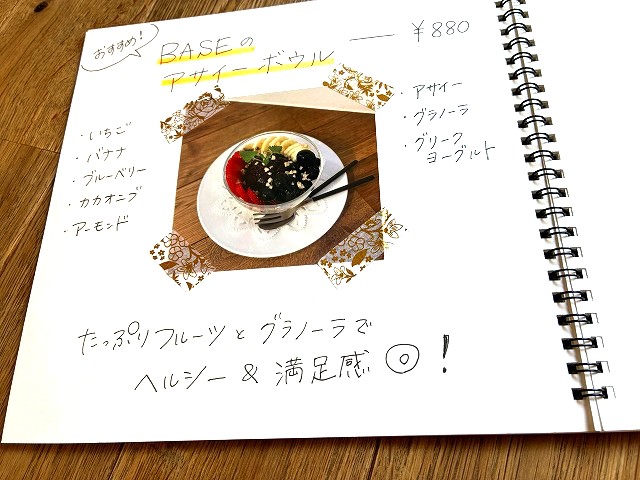 おすすめ!
BASEの
アサイーボウル ― ¥880
・いちご
・バナナ
・ブルーベリー
・カカオニブ
・アーモンド
・アサイー
・グラノーラ
・グリーク
ヨーグルト
たっぷりフルーツとグラノーラで
ヘルシー & 満足感 ◎!